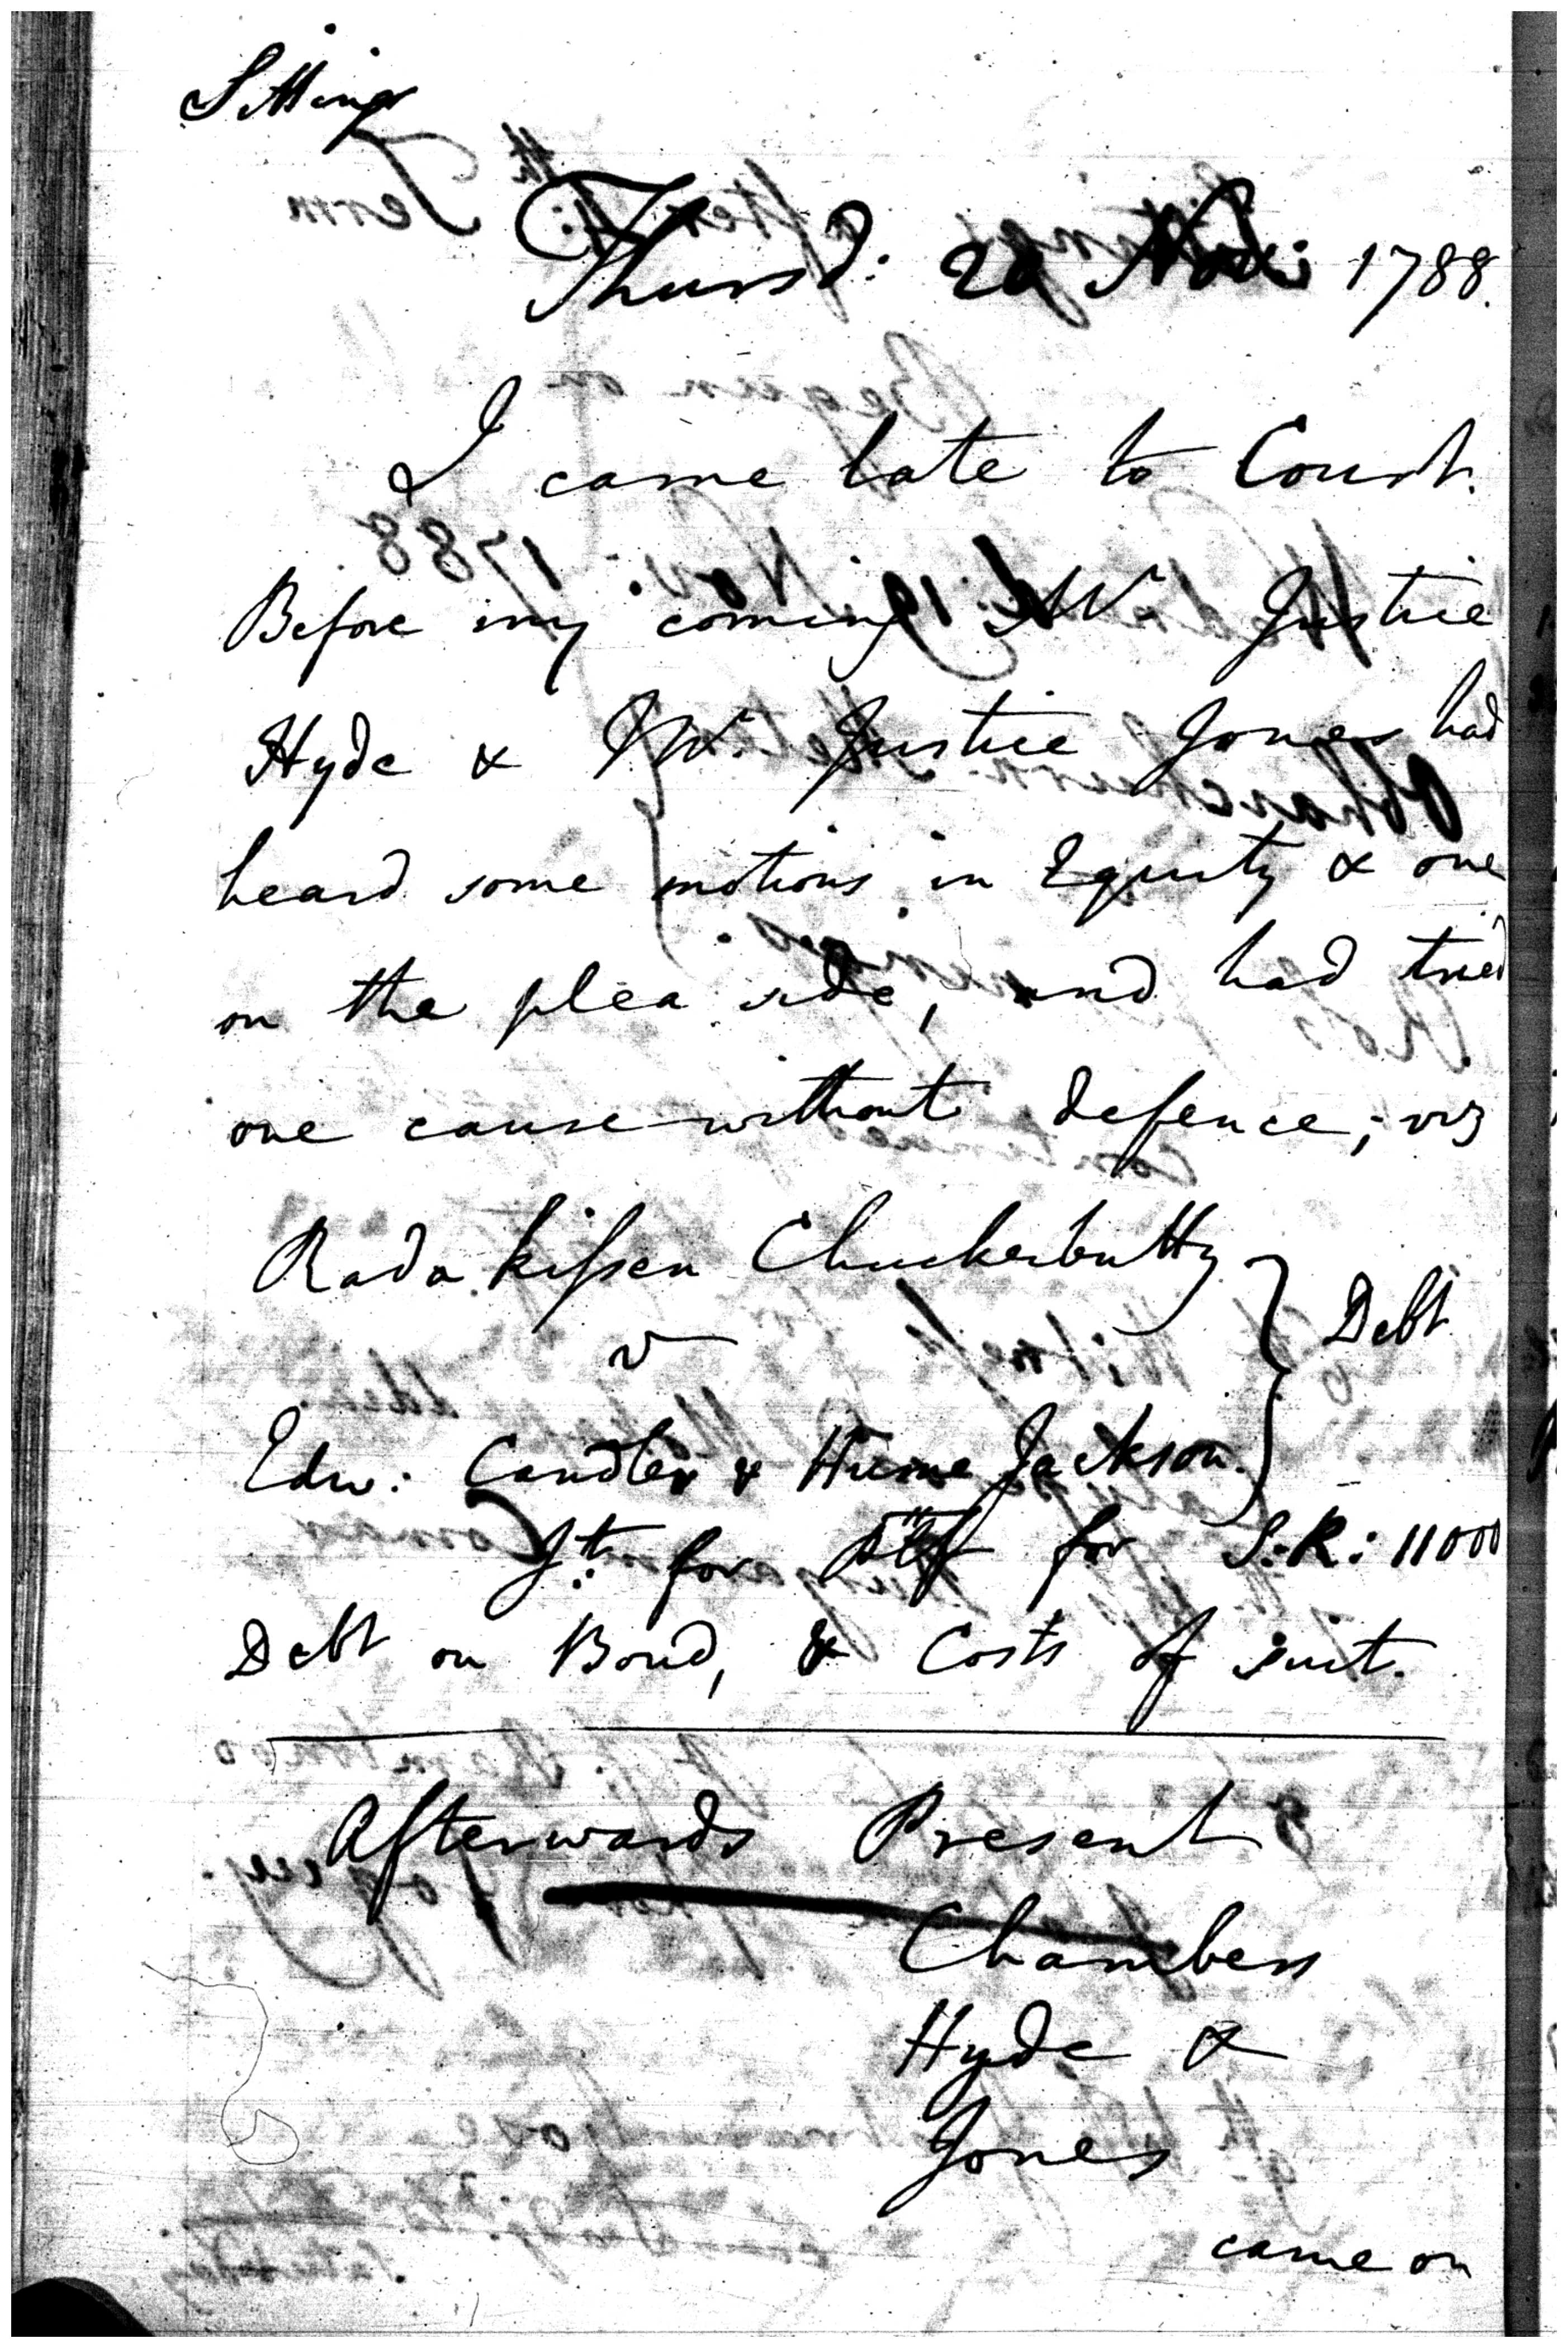 Sittings
Thursd: 20 Nov: 1788.
I came late to Court.
Before my coming Mr. Justice
Hyde & Mr. Justice Jones had
heard some motions in Equity & one
on the plea side, and had tried
one cause without defence; viz
Rada kissen Chuckerbutty
v
Debt
Edw: Candler & Hume Jackson.
Jt: for Ptff for S:R: 11000
Debt on Bond, & Costs of suit.
Afterwards Present
Chambers
Hyde &
Jones
came on